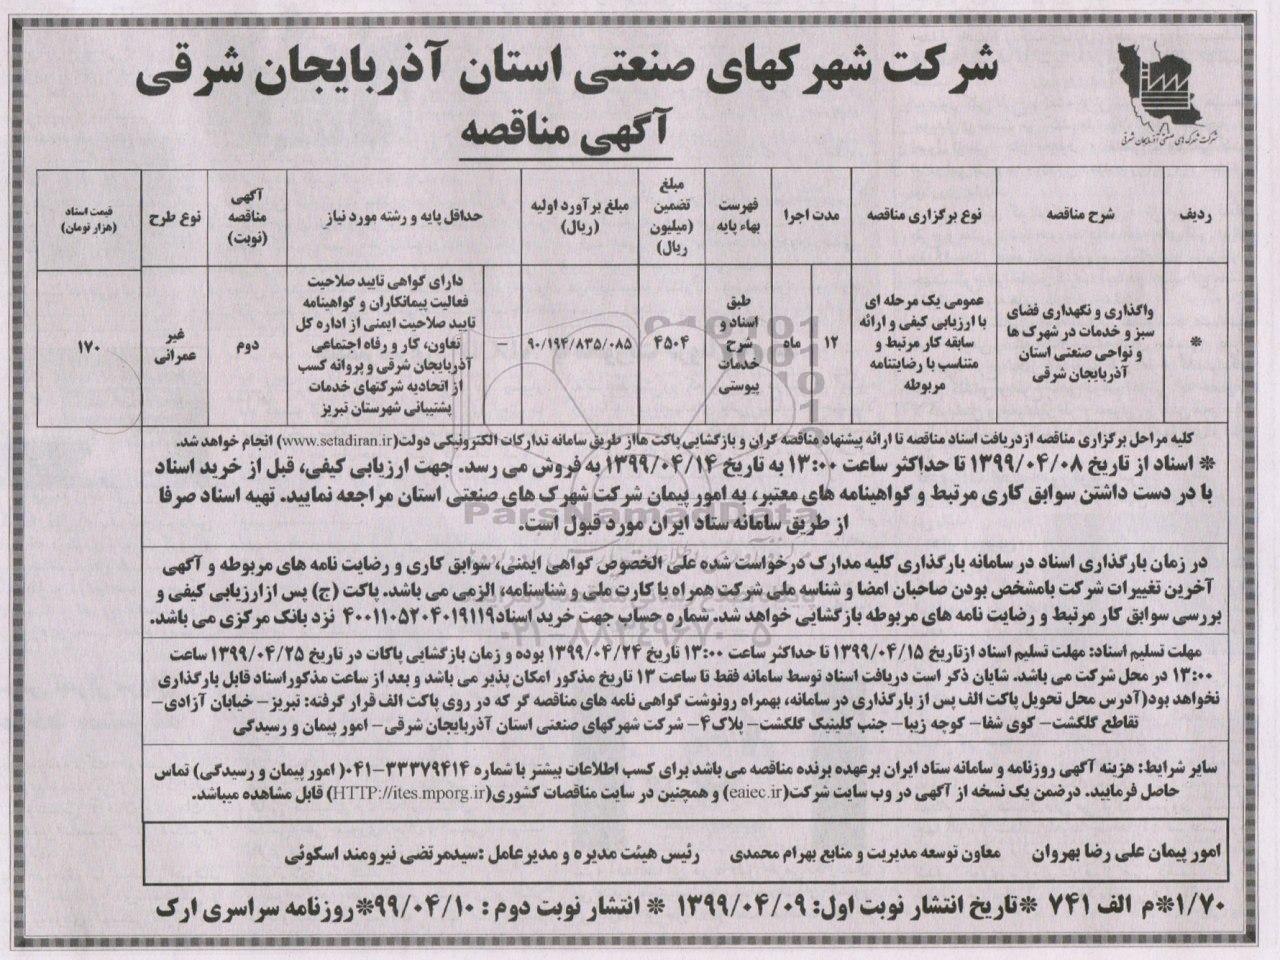 شرکت شهرکهای صنعتی استان آذربایجان شرقی
آگهی مناقصه
شرکت شهرک های صنعتی آذربایجان شرقی
ردیف
شرح مناقصه
نوع برگزاری مناقصه
مدت اجرا
فهرست
بهاء پایه
مبلغ
تضمین
(میلیون
ریال)
مبلغ برآورد اولیه
(ریال)
حداقل پایه و رشته مورد نیاز
آگهی
مناقصه
(نوبت)
نوع طرح
قیمت اسناد
(هزار تومان)
*
واگذاری و نگهداری فضای
سبز و خدمات در شهرک ها
و نواحی صنعتی استان
آذربایجان شرقی
عمومی یک مرحله ای
با ارزیابی کیفی و ارائه
سابقه کار مرتبط و
متناسب با رضایتنامه
مربوطه
۱۲
ماه
طبق
اسناد و
شرح
خدمات
پیوستی
۴۵۰۴
۹۰/۱۹۴/۸۳۵/۰۸۵
–
دارای گواهی تایید صلاحیت
فعالیت پیمانکاران و گواهینامه
تایید صلاحیت ایمنی از اداره کل
تعاون، کار و رفاه اجتماعی
آذربایجان شرقی و پروانه کسب
از اتحادیه شرکتهای خدمات
پشتیبانی شهرستان تبریز
دوم
غیر
عمرانی
۱۷۰
کلیه مراحل برگزاری مناقصه ازدریافت اسناد مناقصه تا ارائه پیشنهاد مناقصه گران و بازگشایی پاکت هااز طریق سامانه تدارکات الکترونیکی دولت(www.setadiran.ir) انجام خواهد شد.
* اسناد از تاریخ ۱۳۹۹/۰۴/۰۸ تا حداکثر ساعت ۱۳:۰۰ به تاریخ ۱۳۹۹/۰۴/۱۴ به فروش می رسد. جهت ارزیابی کیفی، قبل از خرید اسناد
با در دست داشتن سوابق کاری مرتبط و گواهینامه های معتبر، به امور پیمان شرکت شهرک های صنعتی استان مراجعه نمایید. تهیه اسناد صرفا
از طریق سامانه ستاد ایران مورد قبول است.
در زمان بارگذاری اسناد در سامانه بارگذاری کلیه مدارک درخواست شده علی الخصوص گواهی ایمنی، سوابق کاری و رضایت نامه های مربوطه و آگهی
آخرین تغییرات شرکت بامشخص بودن صاحبان امضا و شناسه ملی شرکت همراه با کارت ملی و شناسنامه، الزمی می باشد. پاکت (ج) پس ازارزیابی کیفی و
بررسی سوابق کار مرتبط و رضایت نامه های مربوطه بازگشایی خواهد شد. شماره حساب جهت خرید اسناد۴۰۰۱۱۰۵۲۰۴۰۱۹۱۱۹ نزد بانک مرکزی می باشد.
مهلت تسلیم اسناد: مهلت تسلیم اسناد ازتاریخ ۱۳۹۹/۰۴/۱۵ تا حداکثر ساعت ۱۳:۰۰ تاریخ ۱۳۹۹/۰۴/۲۴ بوده و زمان بازگشایی پاکات در تاریخ ۱۳۹۹/۰۴/۲۵ ساعت
۱۳:۰۰ در محل شرکت می باشد. شایان ذکر است دریافت اسناد توسط سامانه فقط تا ساعت ۱۳ تاریخ مذکور امکان پذیر می باشد و بعد از ساعت مذکوراسناد قابل بارگذاری
نخواهد بود(آدرس محل تحویل پاکت الف پس از بارگذاری در سامانه، بهمراه رونوشت گواهی نامه های مناقصه گر که در روی پاکت الف قرار گرفته: تبریز– خیابان آزادی–
تقاطع گلگشت– کوی شفا– کوچه زیبا– جنب کلینیک گلگشت– پلاک۴– شرکت شهرکهای صنعتی استان آذربایجان شرقی– امور پیمان و رسیدگی
سایر شرایط: هزینه آگهی روزنامه و سامانه ستاد ایران برعهده برنده مناقصه می باشد برای کسب اطلاعات بیشتر با شماره ۳۳۳۷۹۴۱۴–۰۴۱( امور پیمان و رسیدگی) تماس
حاصل فرمایید. درضمن یک نسخه از آگهی در وب سایت شرکت(eaiec.ir) و همچنین در سایت مناقصات کشوری(HTTP://ites.mporg.ir) قابل مشاهده میباشد.
امور پیمان علی رضا بهروان
معاون توسعه مدیریت و منابع بهرام محمدی
رئیس هیئت مدیره و مدیرعامل :سیدمرتضی نیرومند اسکوئی
۱/۷۰*م الف ۷۴۱ *تاریخ انتشار نوبت اول: ۱۳۹۹/۰۴/۰۹ * انتشار نوبت دوم : ۹۹/۰۴/۱۰*روزنامه سراسری ارک
ParsNamadData
۰۲۱–۸۸۳۴۹۶۷۰–۵